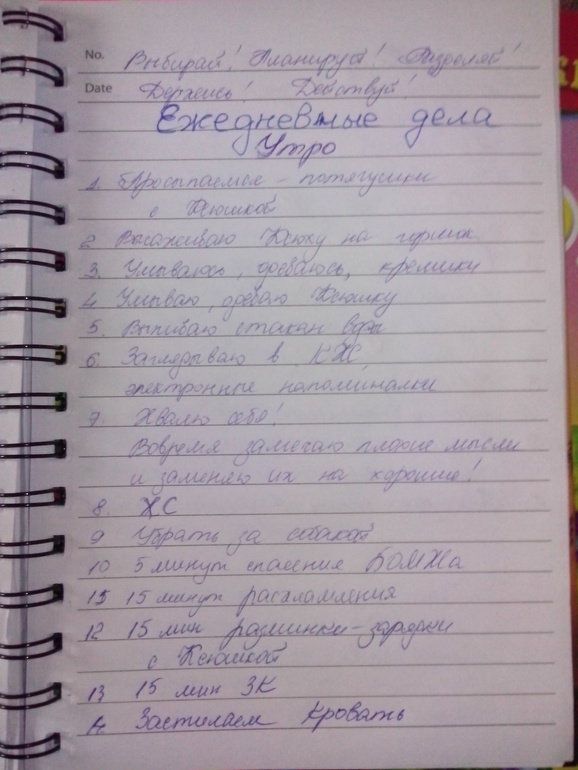 No. Выбирай! Планируй! Разделяй!
Date Держись! Действуй!
Ежедневные дела
Утро
1. Просыпаемся - потягушки
с Ксюшкой
2 Высаживаю Ксюху на горшок
3. Умываюсь, одеваюсь, кремики
4 Умываю, одеваю Ксюшку
5. Выпиваю стакан воды
6. Заглядываю в КЖ,
электронные напоминалки
7. Хвалю себя!
Вовремя замечаю плохие мысли
и заменяю их на хорошие!
8. ХС
9 Убрать за собакой
10 5 минут спасения БОМЖа
15 15 минут расхламления
12 15 мин разминки-зарядки
с Ксюшкой
13 15 мин ЗК
Застилаем кровать